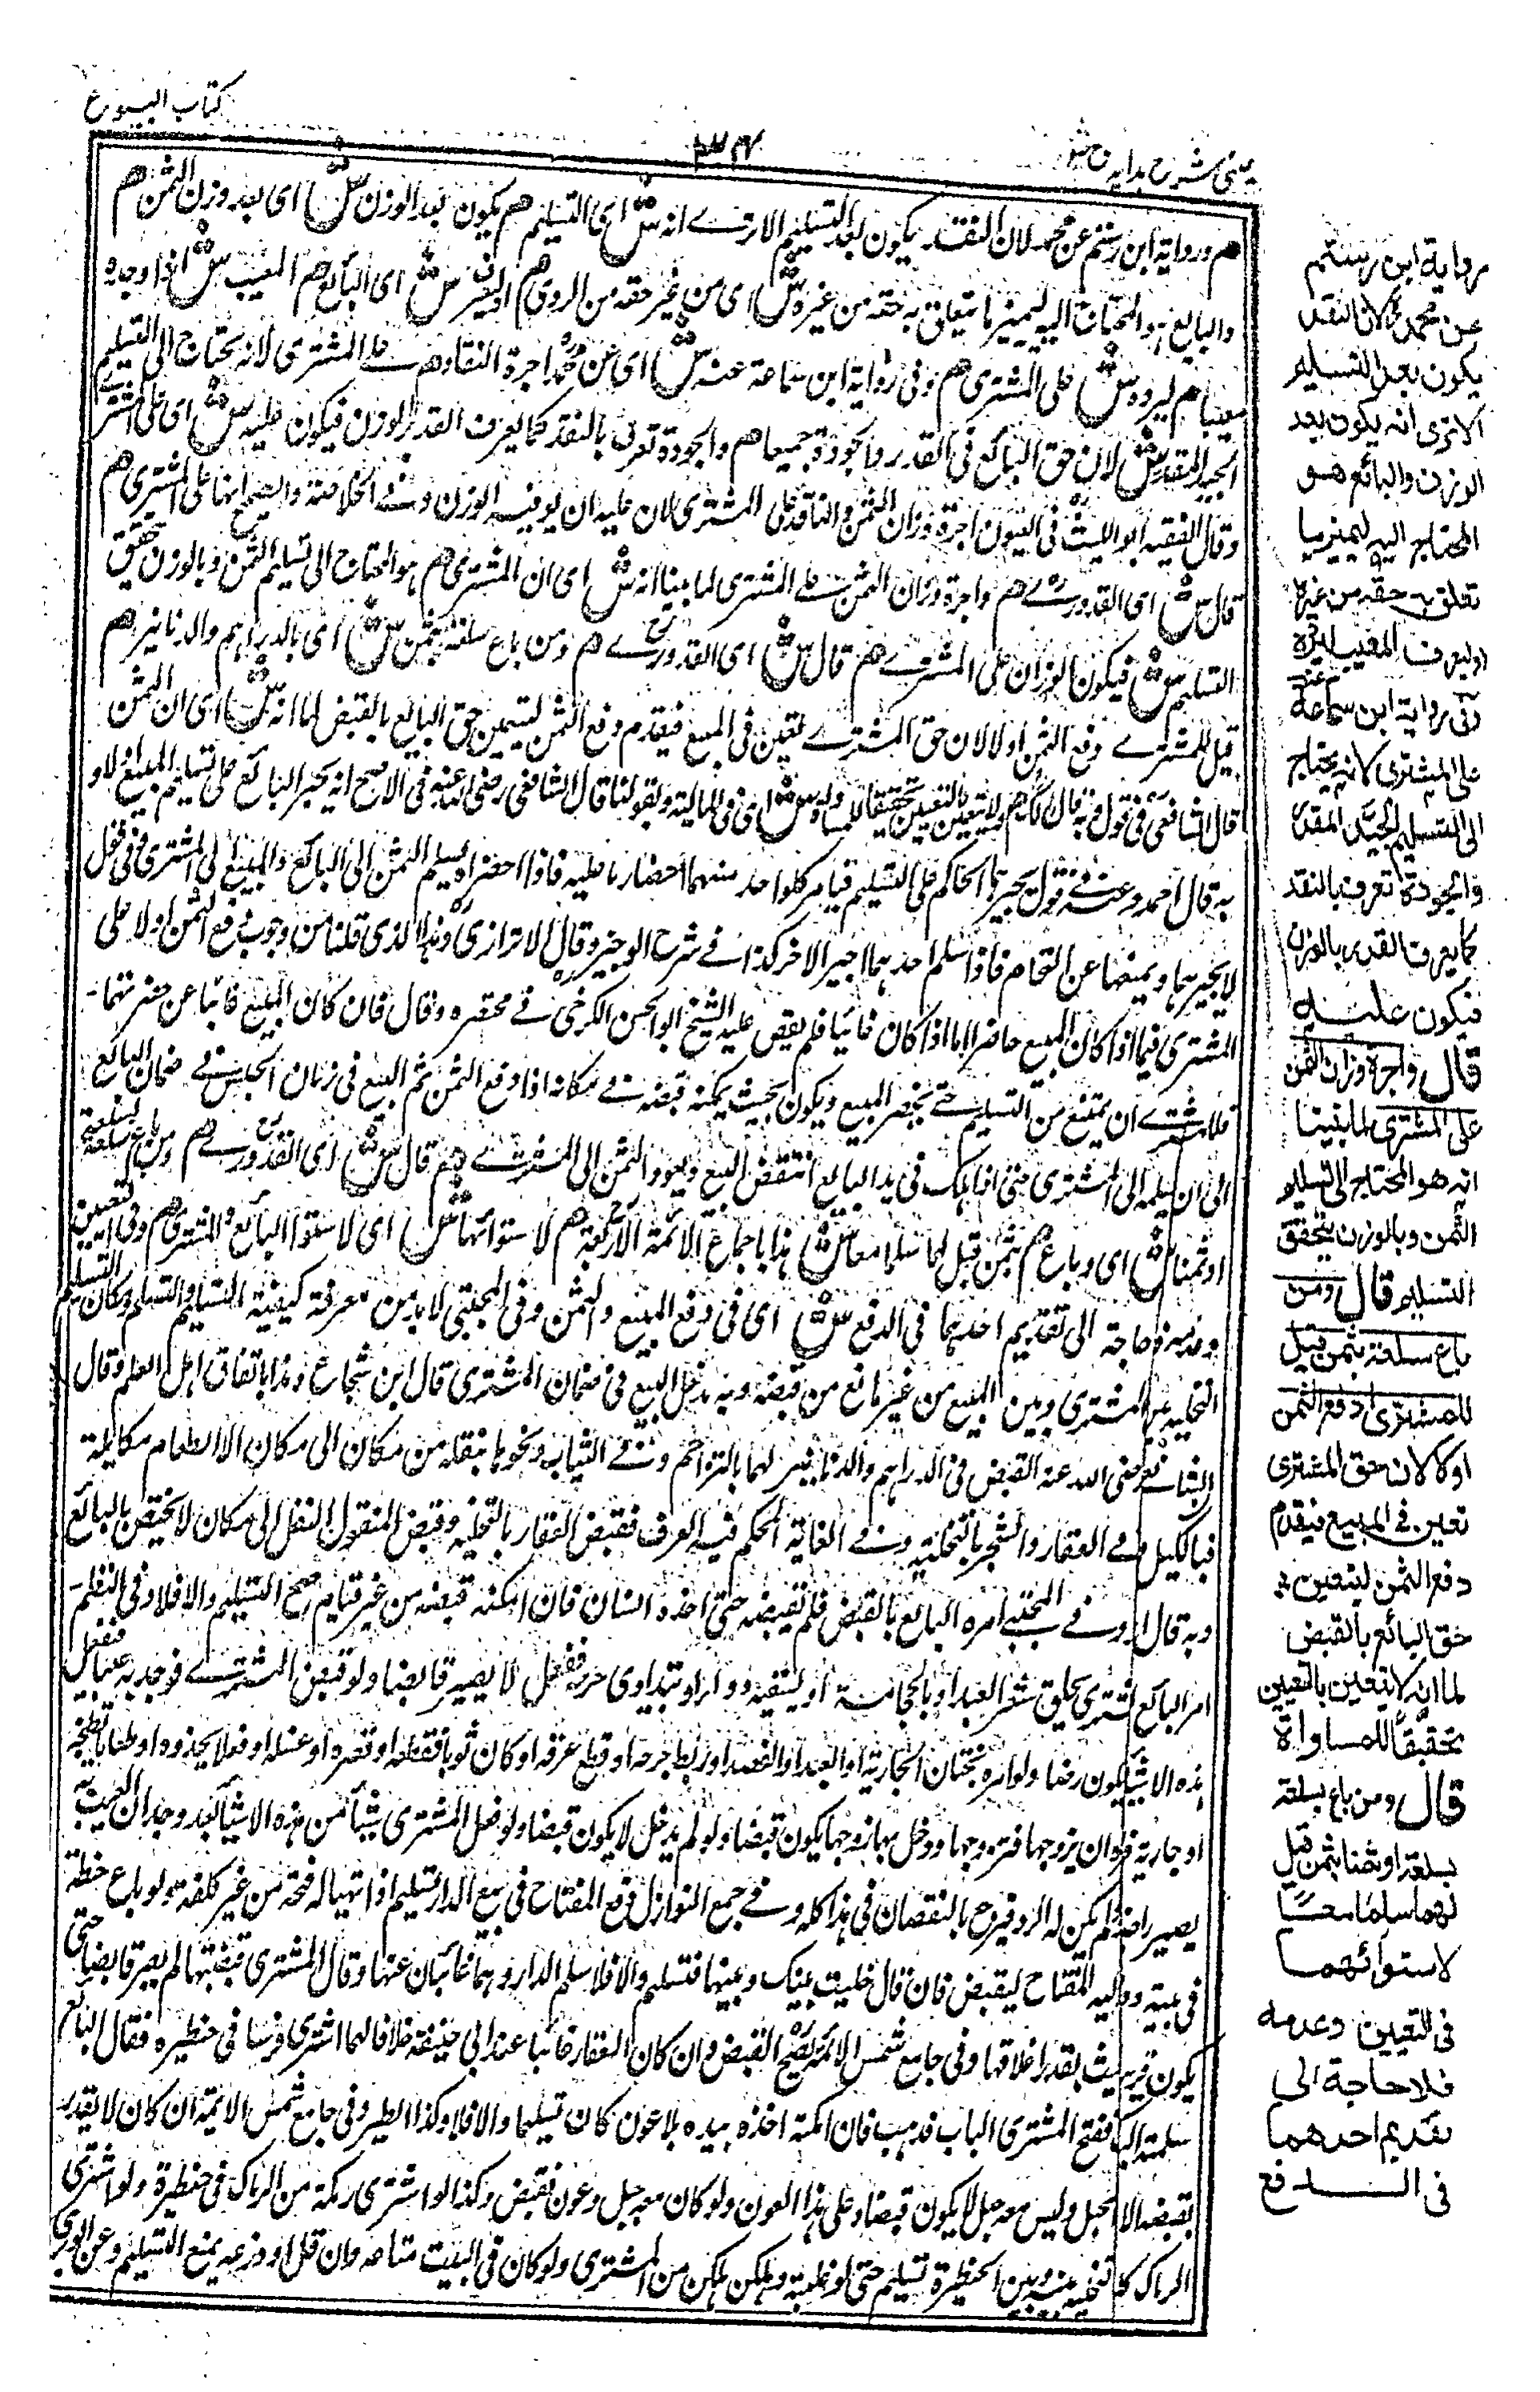 كتاب البيوع
عينى شرح هداية ج
هم ورواية ابن رستم عن محمد لان النقد يكون بعد التسليم الا ترے انه ش اى التسليم هم يكون بعد الوزن ش اى بعد وزن الثمن هم
والبائع هو المحتاج اليه ليميز ما تعلق به حقه من غيره ش اى من غير حقه من الردى هم او ليعرف ش اى البائع هم المعيب ش اذا وجده
معيبا هم ليرده ش على المشترى هم وفى رواية ابن سماعة عنه ش اى عن محمد اجرة النقاد هم على المشترى لانه يحتاج الى التسليم
الجيد المقدر ش لان حق البائع فى القدر والجودة جميعا هم والجودة تعرف بالنقد كما يعرف القدر بالوزن فيكون عليه ش اى على المشترے
وقال الفقيه ابو الليث فى العيون اجرة وزان الثمن والناقد على المشترى لان عليه ان يوفيه الوزن وفى الخلاصة والصحيح انها على المشترى هم
قال ش اى القدورے هم واجرة وزان الثمن على المشترى لما بينا انه ش اى ان المشترى هم هو المحتاج الى تسليم الثمن وبالوزن يتحقق
التسليم ش فيكون الوزان على المشترے هم قال ش اى القدورے هم ومن باع سلعة بثمن ش اى بالدراهم والدنانير هم
قيل للمشترے ادفع الثمن اولا لان حق المشترے تعين فى المبيع فيقدم دفع الثمن ليتعين حق البائع بالقبض لما انه ش اى ان الثمن
قال الشافعى فى قول وبه قال مالك هم لا يتعين بالتعيين تحقيقا للمساواة ش اى فى المالية وبقولنا قال الشافعى رضى الله عنه فى الاصح انه يجبر البائع على تسليم المبيع اولا و
به قال احمد وعنه فى قول يجبرهما الحاكم على التسليم فيأمر كل واحد منهما احضار ما عليه فاذا احضراه يسلم الثمن الى البائع والمبيع الى المشترى وفى قول
لا يجبرهما ويمنعهما عن التخاصم فاذا سلم احدهما اجبر الاخر كذا فے شرح الوجيز وقال الاترازى وهذا الذى قلنا من وجوب دفع الثمن اولا على
المشترى فيما اذا كان المبيع حاضرا اما اذا كان غائبا فلم نص عليه الشيخ ابو الحسن الكرخى فے مختصره وقال فان كان المبيع غائبا عن حضرتهما
فللمشترے ان يمتنع من التسليم حتے يحضر المبيع ويكون بحيث يمكنه قبضه فے مكانه اذا دفع الثمن ثم المبيع فى زمان الحبس فے ضمان البائع
الى ان يسلمه الى المشترى حتى اذا هلك فى يد البائع انتقض البيع ويعود الثمن الى المشترے هم قال ش اى القدورے هم ومن باع سلعة بسلعة
او ثمنا ش اى وباع هم بثمن قيل لهما سلما معا ش هذا باجماع الائمة الاربعة هم لاستوائهما ش اى لاستواء البائع والمشترى هم فى التعيين
وعدمه فلا حاجة الى تقديم احدهما فى الدفع ش اى فى دفع المبيع والثمن وفى المجتبى لابد من معرفة كيفية التسليم والتسلم وكان التسليم
التخلية بين المشترى وبين المبيع من غير مانع من قبضه وبه يدخل المبيع فى ضمان المشترى قال ابن شجاع وهذا باتفاق اهل العلم وقال
الشافعى رضى الله عنه القبض فى الدراهم والدنانير لهما بالتراجم وفے الثياب ونحوها بنقله من مكان الى مكان الا الطعام مكايلة
فبالكيل وفے العقار والشجر بالتخلية وفے الغاية الحكم فيه العرف فقبض العقار بالتخلية وقبض المنقول النقل الى مكان لا يختص بالبائع
وبه قال وفے المجتبى امره البائع بالقبض فلم يقبضه حتى اخذه انسان فان امكنه قبضه من غير قيام صح التسليم والا فلا وفى النظم
امر البائع المشترى بحلق شعر العبد او بالحجامة او ليسقيه دواء او تداوى جرحه ففعل لا يصير قابضا ولو قبض المشترے فوجد به عيبا ففعل
هذه الاشياء يكون رضا ولو امره بختان الجارية او العبد او الفصد او ربط جرحه او قطع عرقه او كان ثوبا فقطعه او قصره او غسله او نعلا يحذوه او طعاما يطبخه
او جارية فزوان يزوجها فتزوجها ودخل بها زوجها يكون قبضا ولو لم يدخل لا يكون قبضا ولو فعل المشترى شيأ من هذه الاشياء بعد وجدان العيب به
يصير راضيا لم يكن له الرد ويرجع بالنقصان فى هذا كله وفے جمع النوازل دفع المفتاح فى بيع الدار تسليم اذا تهيأ له فتحه من غير كلفة ولو باع حنطة
فى بيته ودفع اليه المفتاح ليقبض فان قال خليت بينك وبينها فتسليم والا فلا سلم الدار وهما غائبان عنها وقال المشترى قبضتها لم يصر قابضا حتى
يكون قريبا بحيث يقدر اغلاقها وفى جامع شمس الائمة يصح القبض وان كان العقار غائبا عند ابى حنيفة خلافا لهما اشترى فرسا فى حظيرة فقال البائع
سلمته اليك ففتح المشترى الباب فذهب فان امكنه اخذه بيده بلا عون كان تسليما والا فلا وكذا الطير وفى جامع شمس الائمة ان كان لا يقدر
بقبضه الا بحبل وليس معه حبل لا يكون قبضا وعلى هذا العون ولو كان معه حبل وعون فقبض وكذا لو اشترى رمكة من الرماك فى حظيرة ولو اشترى
الرماك كلها تخلية بينه وبين الحظيرة تسليم حتى لو غلبته ولم يكن من المشترى ولو كان فى البيت متاعه وان قل او وزعه يمنع التسليم وعن الوبرى
رواية ابن رستم
عن محمد لان النقد
يكون بعد التسليم
الا ترى انه يكون بعد
الوزن والبائع هو
المحتاج اليه ليميز ما
تعلق به حقه من غيره
او ليعرف المعيب ليرده
وفى رواية ابن سماعة عنه
على المشترى لانه يحتاج
الى تسليم الجيد المقدر
والجودة تعرف بالنقد
كما يعرف القدر بالوزن
فيكون عليه
قال واجرة وزان الثمن
على المشترى لما بينا
انه هو المحتاج الى تسليم
الثمن وبالوزن يتحقق
التسليم قال ومن
باع سلعة بثمن قيل
للمشترى ادفع الثمن
اولا لان حق المشترى
تعين فى المبيع فيقدم
دفع الثمن ليتعين
حق البائع بالقبض
لما انه لا يتعين بالتعيين
تحقيقا للمساواة
قال ومن باع سلعة
بسلعة او ثمنا بثمن قيل
لهما سلما معا
لاستوائهما
فى التعيين وعدمه
فلا حاجة الى
تقديم احدهما
فى الدفع